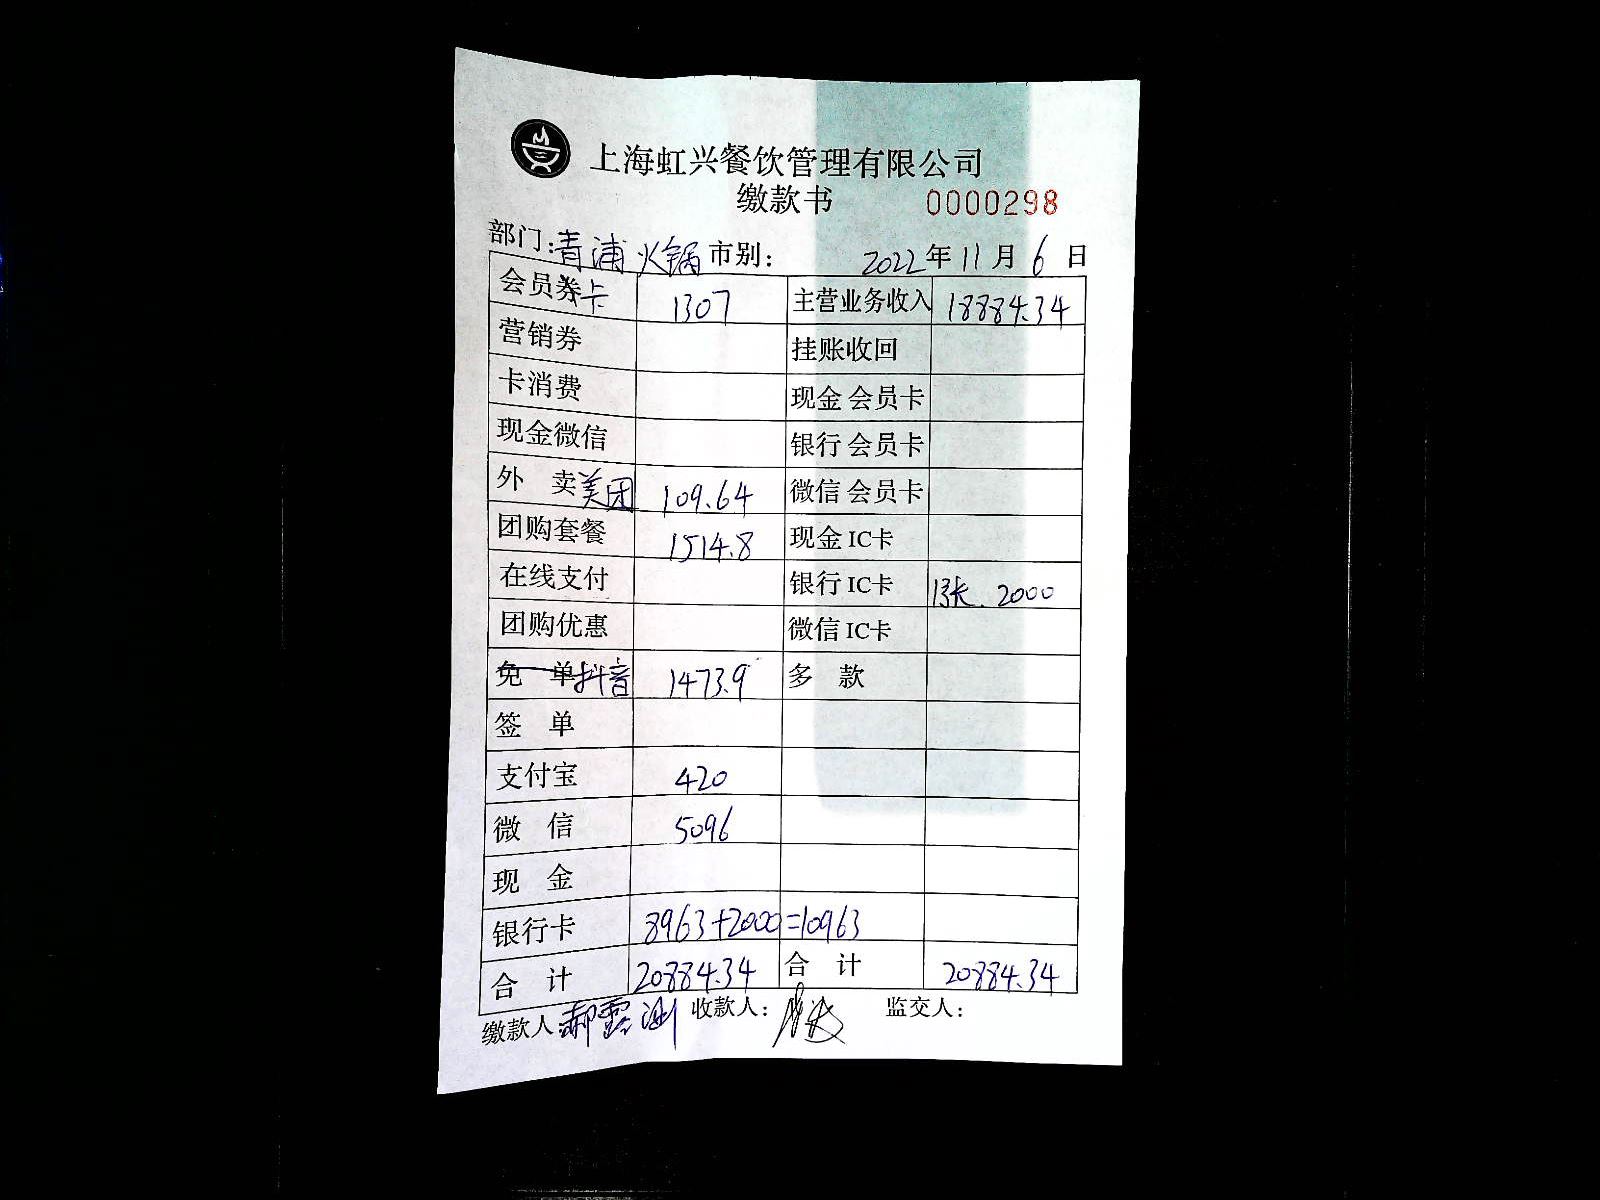 上海虹兴餐饮管理有限公司
缴款书 0000298
部门:青浦火锅 市别: 2022年11月6日
会员券卡 1307 主营业务收入 18884.34
营销券 挂账收回
卡消费 现金会员卡
现金微信 银行会员卡
外 卖美团 109.64 微信会员卡
团购套餐 1514.8 现金IC卡
在线支付 银行IC卡 1张. 2000
团购优惠 微信IC卡
免 单抖音 1473.9 多 款
签 单
支付宝 420
微 信 5096
现 金
银行卡 8963+2000=10963
合 计 20884.34 合 计 20884.34
缴款人 郝 收款人: 监交人: